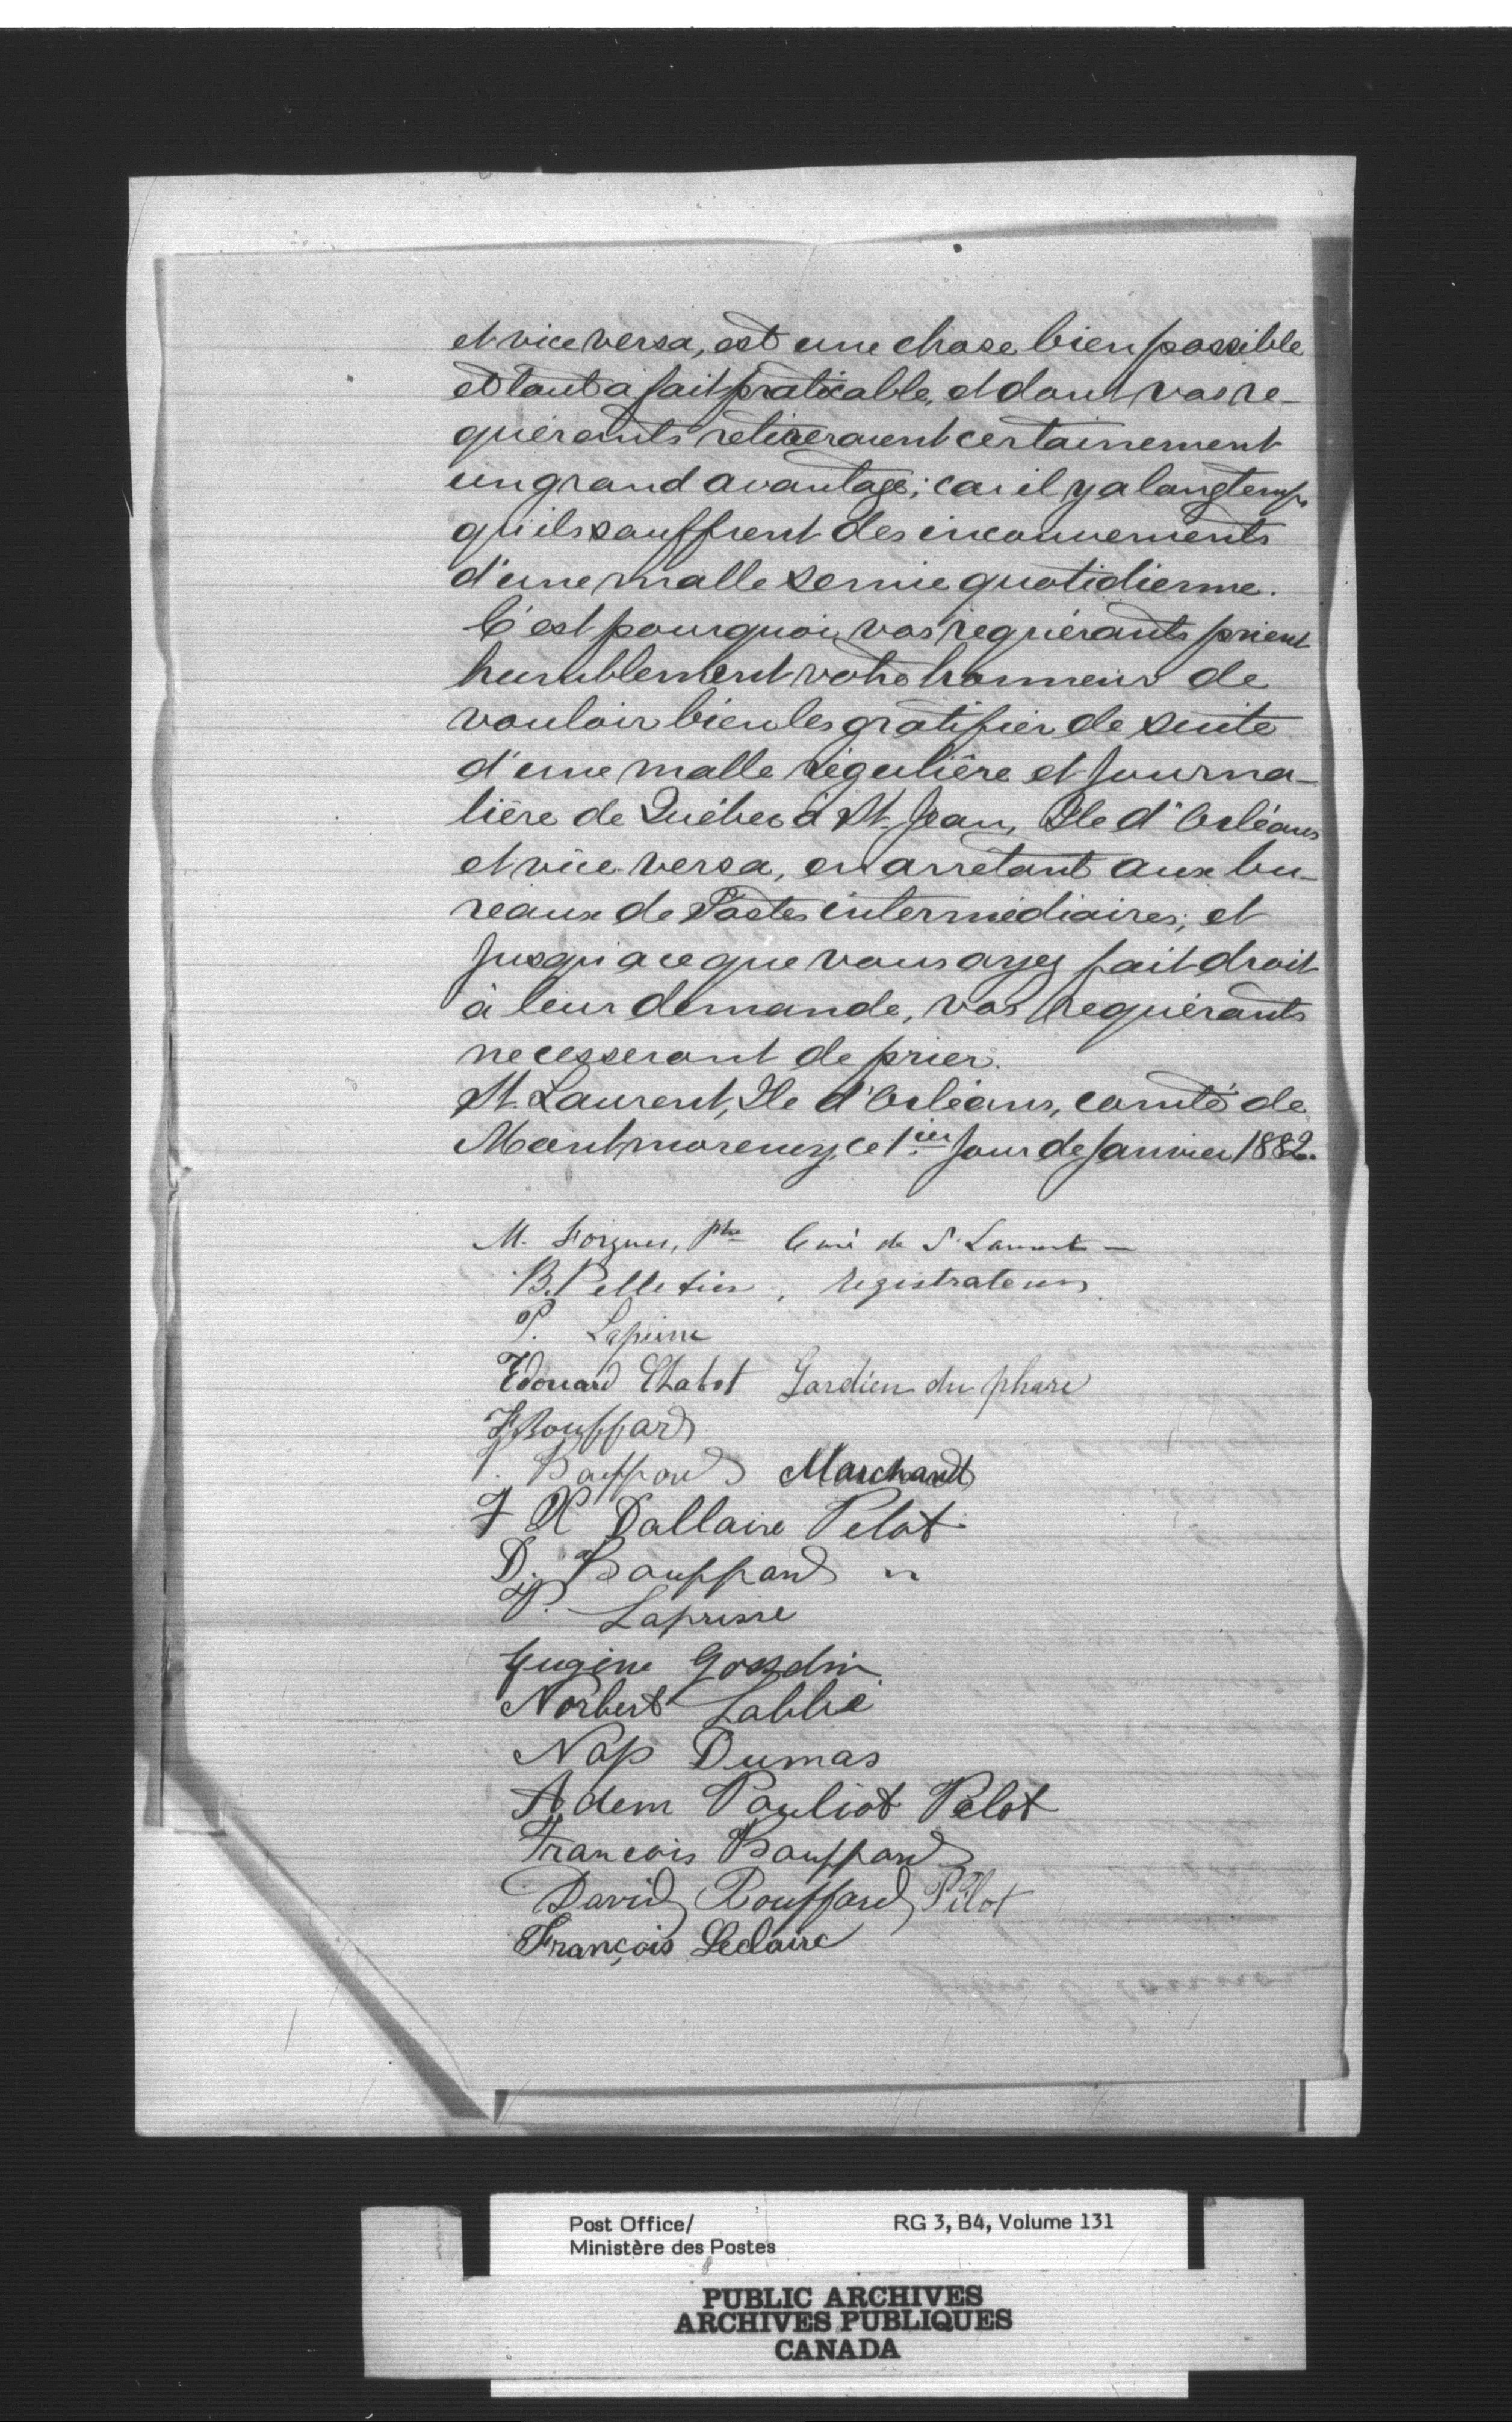 et vice versa, est une chose bien possible
et tout a fait praticable, et dont vos re-
quérants retireraient certainement
un grand avantage; car il y a longtemps
qu'ils souffrent des inconvenients
d'une malle semie quotidienne.
C'est pourquoi vos requérants prient
humblement votre honneur de
vouloir bien les gratifier de suite
d'une malle régulière et journa-
lière de Québec à St. Jean, Ile d'Orléans
et vice versa, en arretant aux bu-
reaux de Postes intermédiaires; et
jusqu'a ce que vous ayez fait droit
à leur demande, vos requérants
ne cesseront de prier.
St. Laurent, Ile d'Orléans, comté de
Montmorency, ce 1ier jour de janvier 1882.
M. Forgues, Ptre Curé de St. Laurent —
B. Pelletier, registrateur
P. Lapierre
Edouard Chabot Gardien du phare
F Bouffard
Bouffard Marchand
F X Dallaire Pelot
D. Bouffard "
P. Laprisse
Eugène Gosselin
Norbert Labbé
Nap Dumas
Adem Pouliot Pelot
Francois Bouffard
David Bouffard Pilot
François Leclaire
Post Office/
Ministère des Postes
RG 3, B4, Volume 131
PUBLIC ARCHIVES
ARCHIVES PUBLIQUES
CANADA